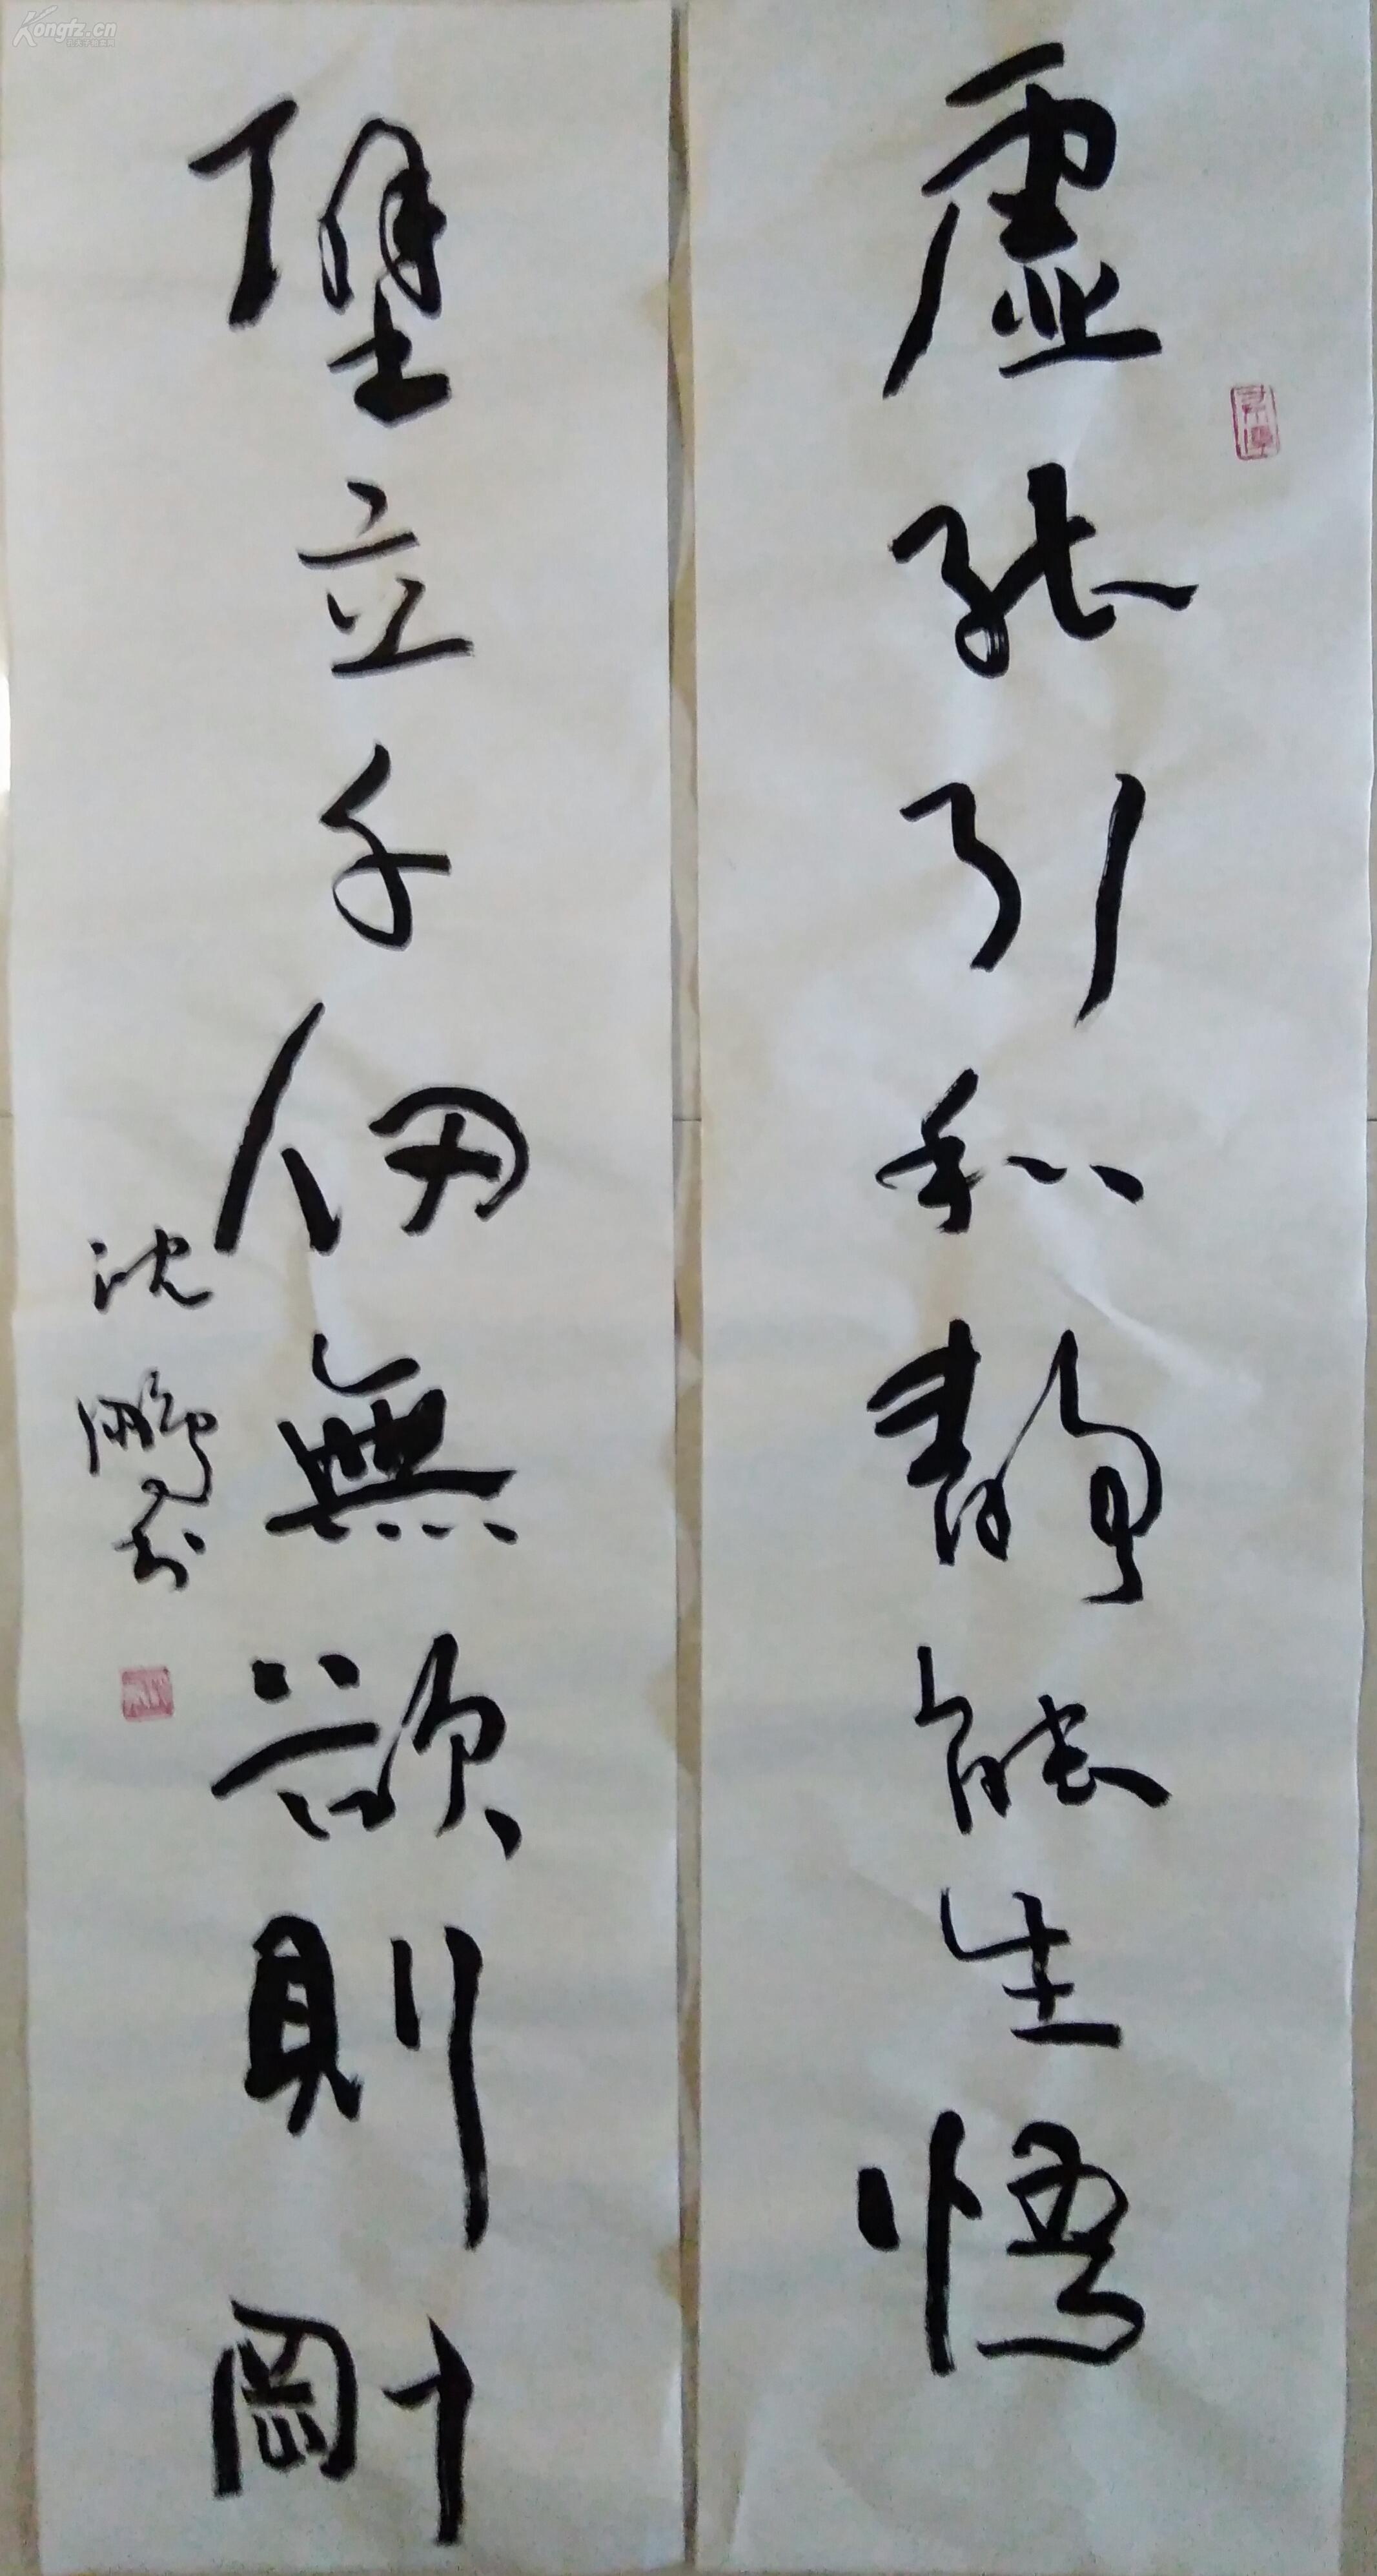 虚能引和静能生悟
壁立千仞無欲則剛
沈鵬书
Kongfz.cn